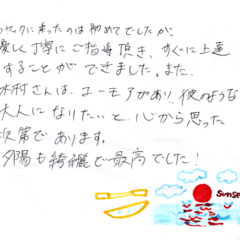 カヤックに乗ったのは初めてでしたが、
優しく丁寧にご指導頂き、すぐに上達
することができました。また、
木村さんは、ユーモアがあり、彼のような
大人になりたいと、心から思った
次第であります。
夕陽も綺麗で最高でした！
sunse